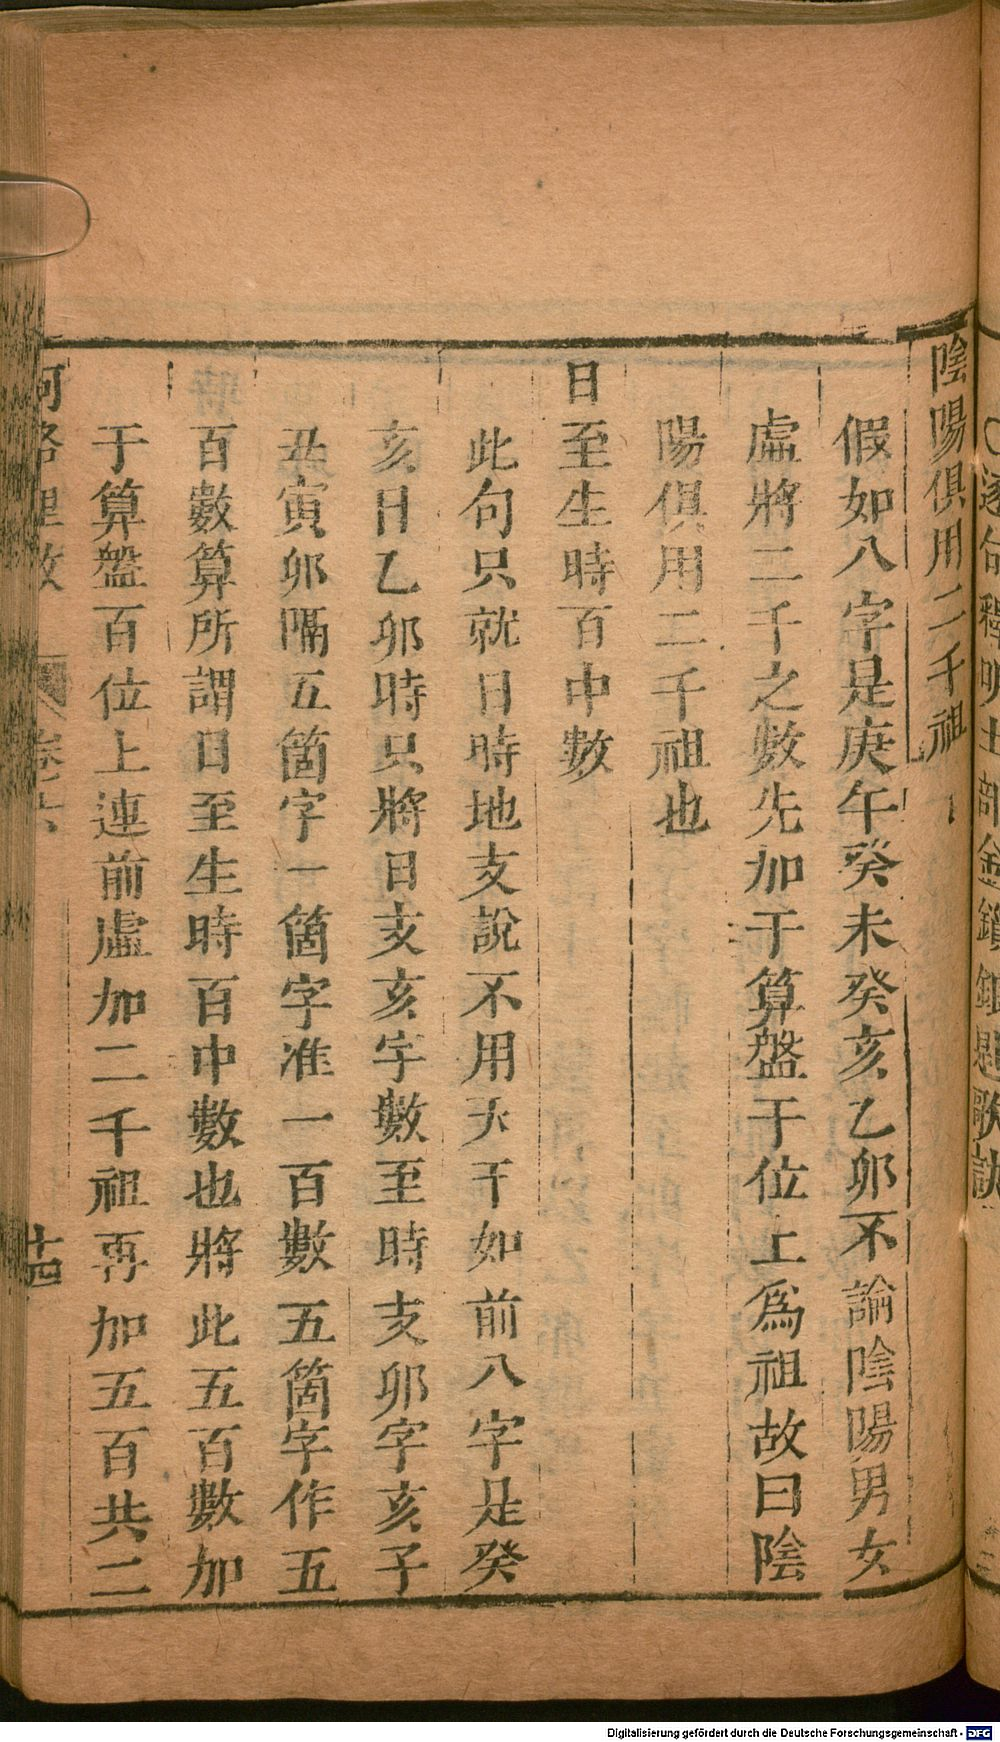 ○逐句釋明士部金鎖銀匙歌訣
陰陽俱用二千祖
假如八字是庚午癸未癸亥乙卯不論陰陽男女
虛將二千之數先加于算盤千位上爲祖故曰陰
陽俱用二千祖也
日至生時百中數
此句只就日時地支說不用天干如前八字是癸
亥日乙卯時只將日支亥字數至時支卯字亥子
丑寅卯隔五箇字一箇字准一百數五箇字作五
百數算所謂日至生時百中數也將此五百數加
于算盤百位上連前虛加二千祖再加五百共二
河洛理數 卷六 十四
Digitalisierung gefördert durch die Deutsche Forschungsgemeinschaft - DFG